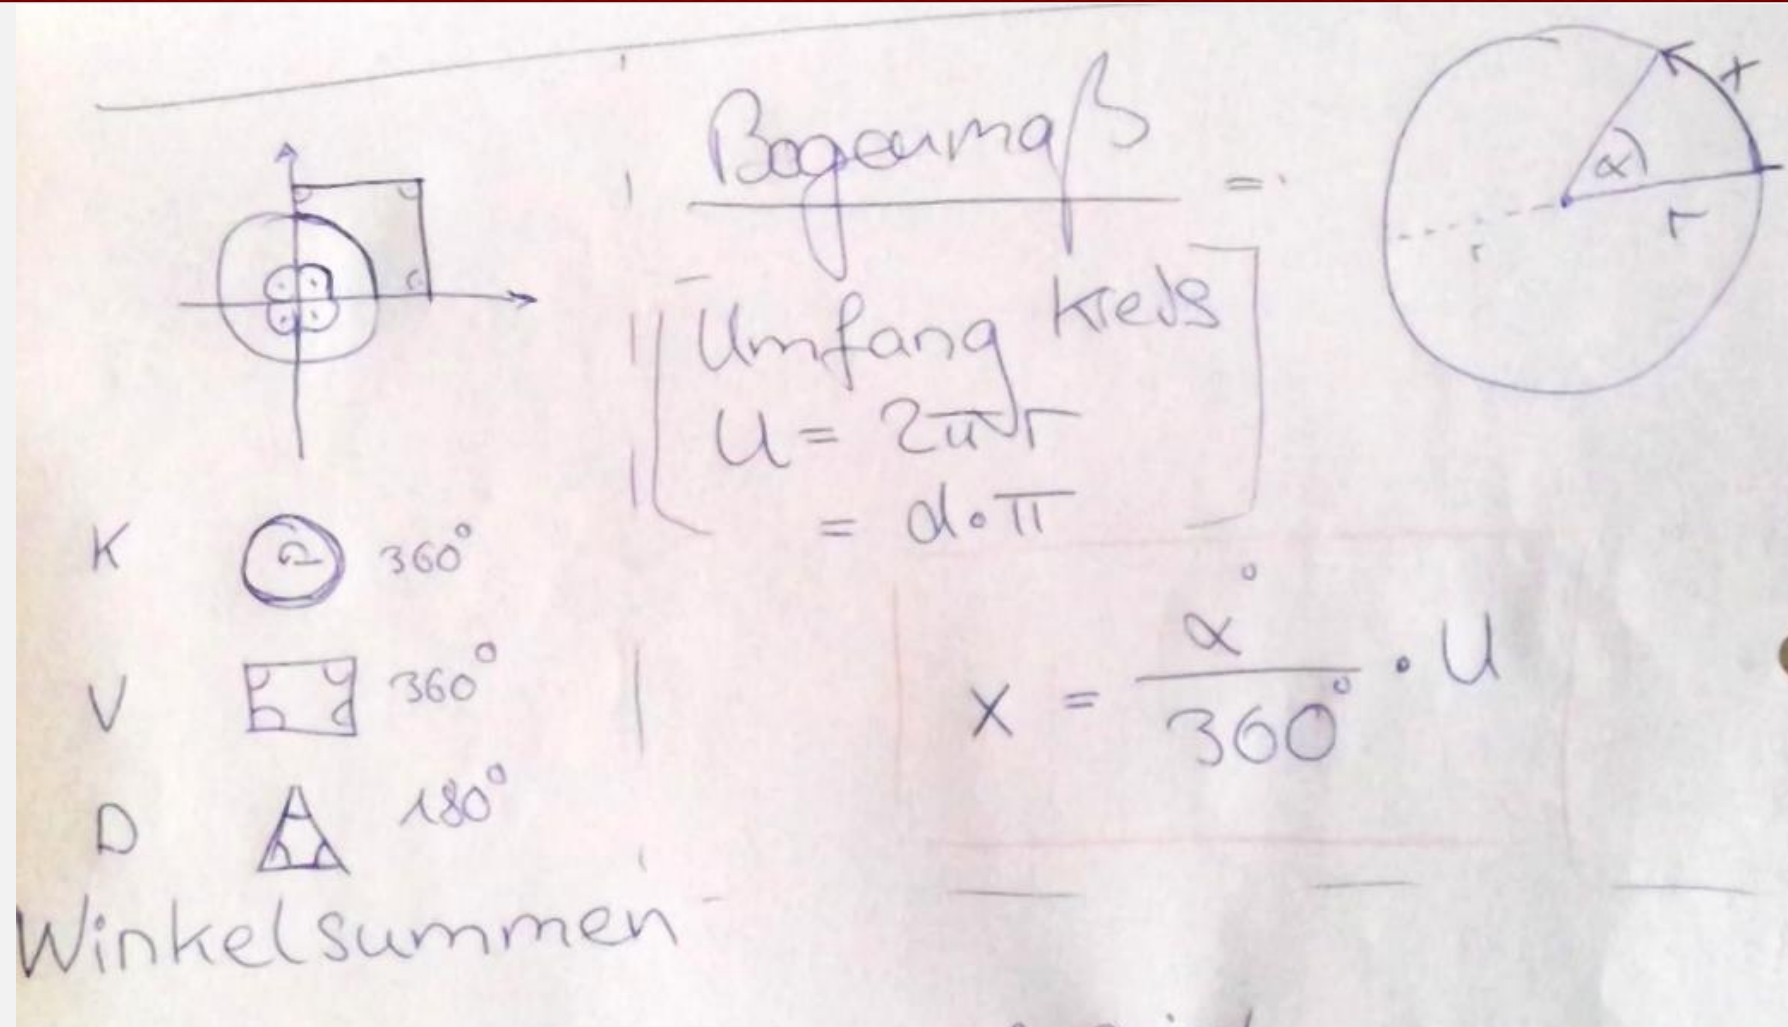 Bogenmaß =
x
α
r
r
Umfang Kreis
U = 2πr
= d·π
K 360°
V 360°
D 180°
Winkelsummen
x = α° / 360° · U